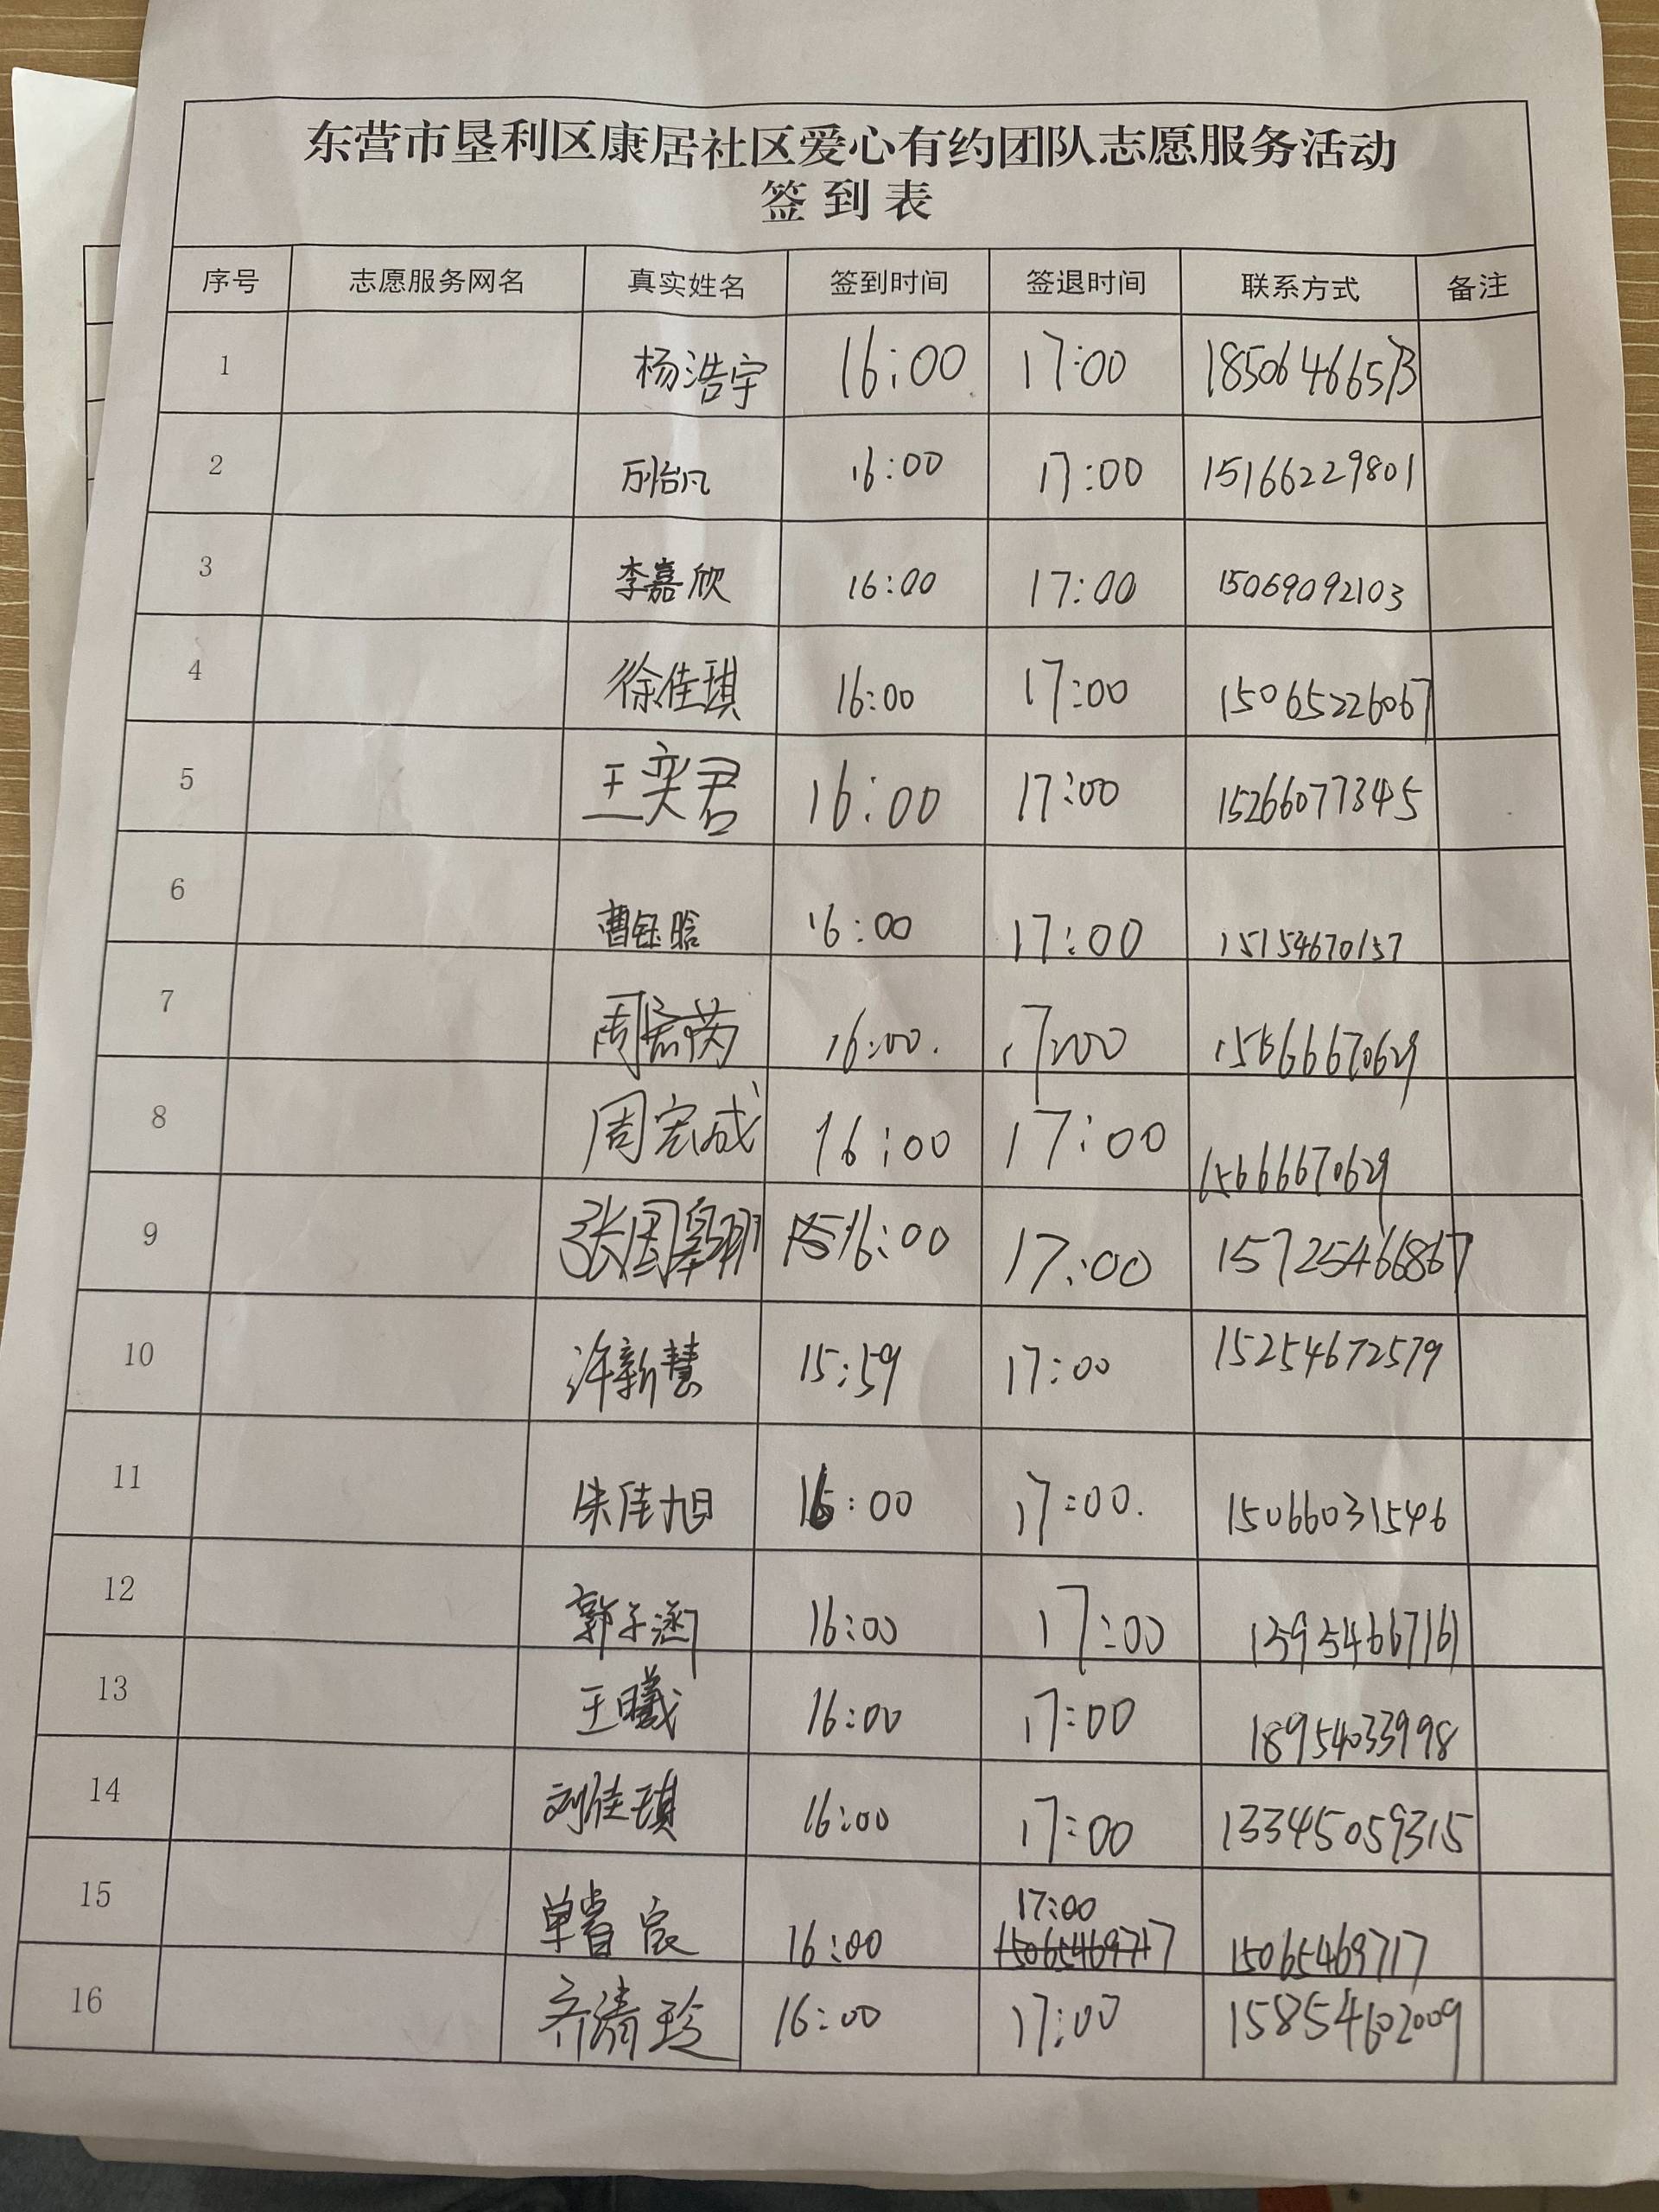 东营市垦利区康居社区爱心有约团队志愿服务活动
签到表
序号 志愿服务网名 真实姓名 签到时间 签退时间 联系方式 备注
1 杨浩宇 16:00 17:00 18506466573
2 16:00 17:00 15166229801
3 李嘉欣 16:00 17:00 15069092103
4 徐佳琪 16:00 17:00 15065226067
5 王奕君 16:00 17:00 15266077345
6 曹钰晗 16:00 17:00 15154670157
7 16:00. 17:00
8 周宏成 16:00 17:00 15666670629
9 16:00 17:00 15725466867
10 许新慧 15:59 17:00 15254672579
11 朱佳旭 16:00 17:00. 15066031546
12 郭子涵 16:00 17:00 13954667161
13 王曦 16:00 17:00 18954033998
14 刘佳琪 16:00 17:00 13345059315
15 16:00 17:00 15065469717 15065469717
16 齐清玲 16:00 17:00 15854602009